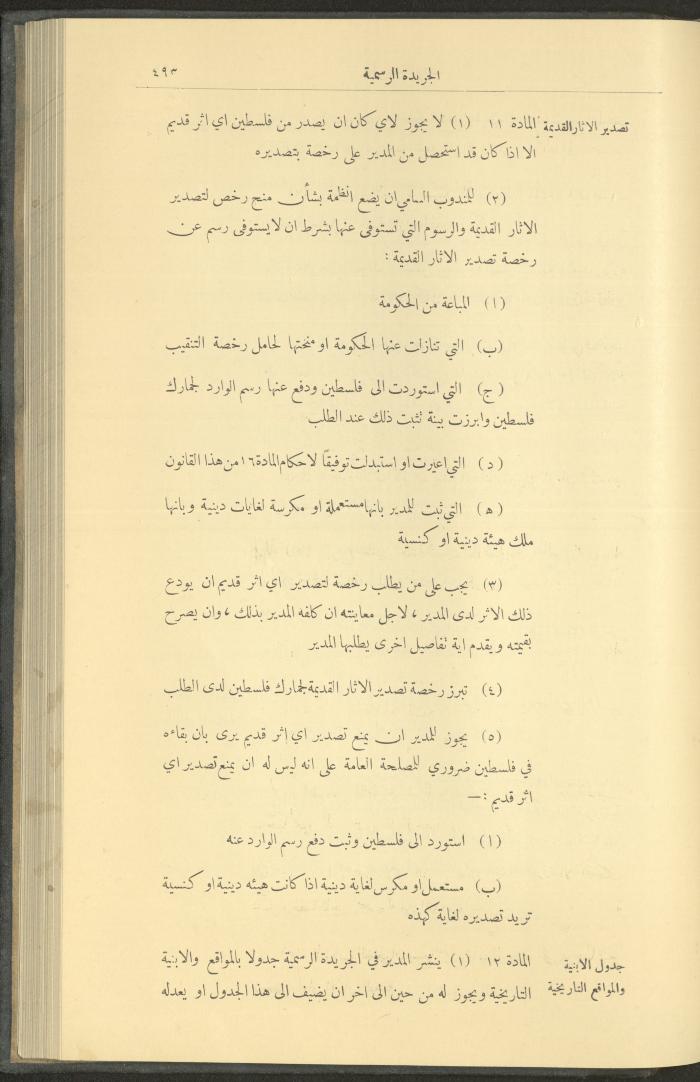 الجريدة الرسمية ٤٩٣
تصدير الاثار القديمة المادة ١١ (١) لا يجوز لاي كان ان يصدر من فلسطين اي اثر قديم
الا اذا كان قد استحصل من المدير على رخصة بتصديره
(٢) للمندوب السامي ان يضع انظمة بشأن منح رخص لتصدير
الاثار القديمة والرسوم التي تستوفى عنها بشرط ان لا يستوفى رسم عن
رخصة تصدير الاثار القديمة :
(ا) المباعة من الحكومة
(ب) التي تنازلت عنها الحكومة او منحتها لحامل رخصة التنقيب
(ج) التي استوردت الى فلسطين ودفع عنها رسم الوارد لجمارك
فلسطين وابرزت بينة تثبت ذلك عند الطلب
(د) التي اعيرت او استبدلت توفيقًا لاحكام المادة ١٦ من هذا القانون
(ه) التي ثبت للمدير بانها مستعملة او مكرسة لغايات دينية وبانها
ملك هيئة دينية او كنسية
(٣) يجب على من يطلب رخصة لتصدير اي اثر قديم ان يودع
ذلك الاثر لدى المدير ، لاجل معاينته ان كلفه المدير بذلك ، وان يصرح
بقيمته ويقدم اية تفاصيل اخرى يطلبها المدير
(٤) تبرز رخصة تصدير الاثار القديمة لجمارك فلسطين لدى الطلب
(٥) يجوز للمدير ان يمنع تصدير اي اثر قديم يرى بان بقاءه
في فلسطين ضروري للمصلحة العامة على انه ليس له ان يمنع تصدير اي
اثر قديم :—
(ا) استورد الى فلسطين وثبت دفع رسم الوارد عنه
(ب) مستعمل او مكرس لغاية دينية اذا كانت هيئه دينية او كنسية
تريد تصديره لغاية كهذه
جدول الابنية المادة ١٢ (١) ينشر المدير في الجريدة الرسمية جدولا بالمواقع والابنية
والمواقع التاريخية التاريخية ويجوز له من حين الى اخر ان يضيف الى هذا الجدول او يعدله